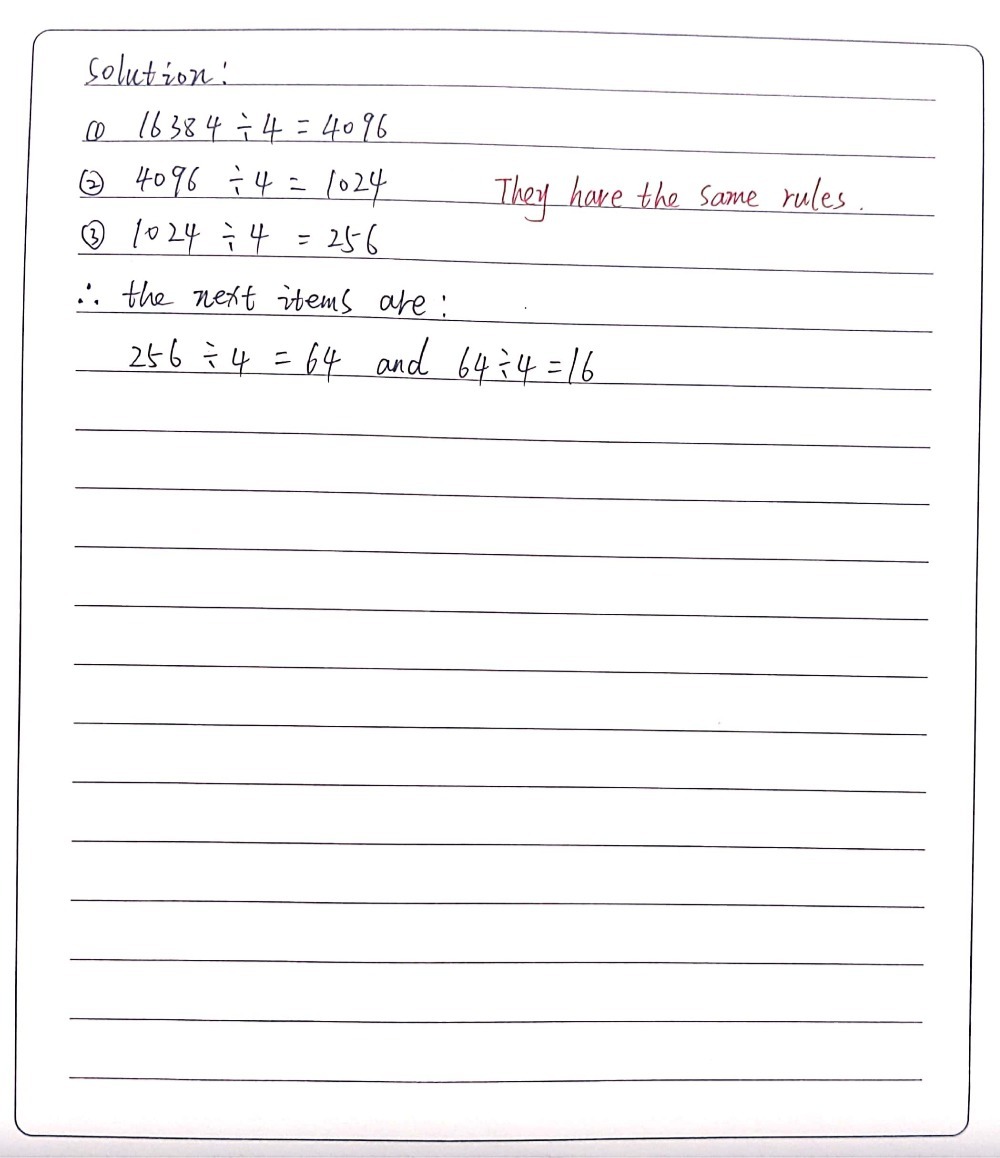 Solution:
① 16384 ÷ 4 = 4096
② 4096 ÷ 4 = 1024 They have the same rules.
③ 1024 ÷ 4 = 256
∴ the next items are:
256 ÷ 4 = 64 and 64 ÷ 4 = 16